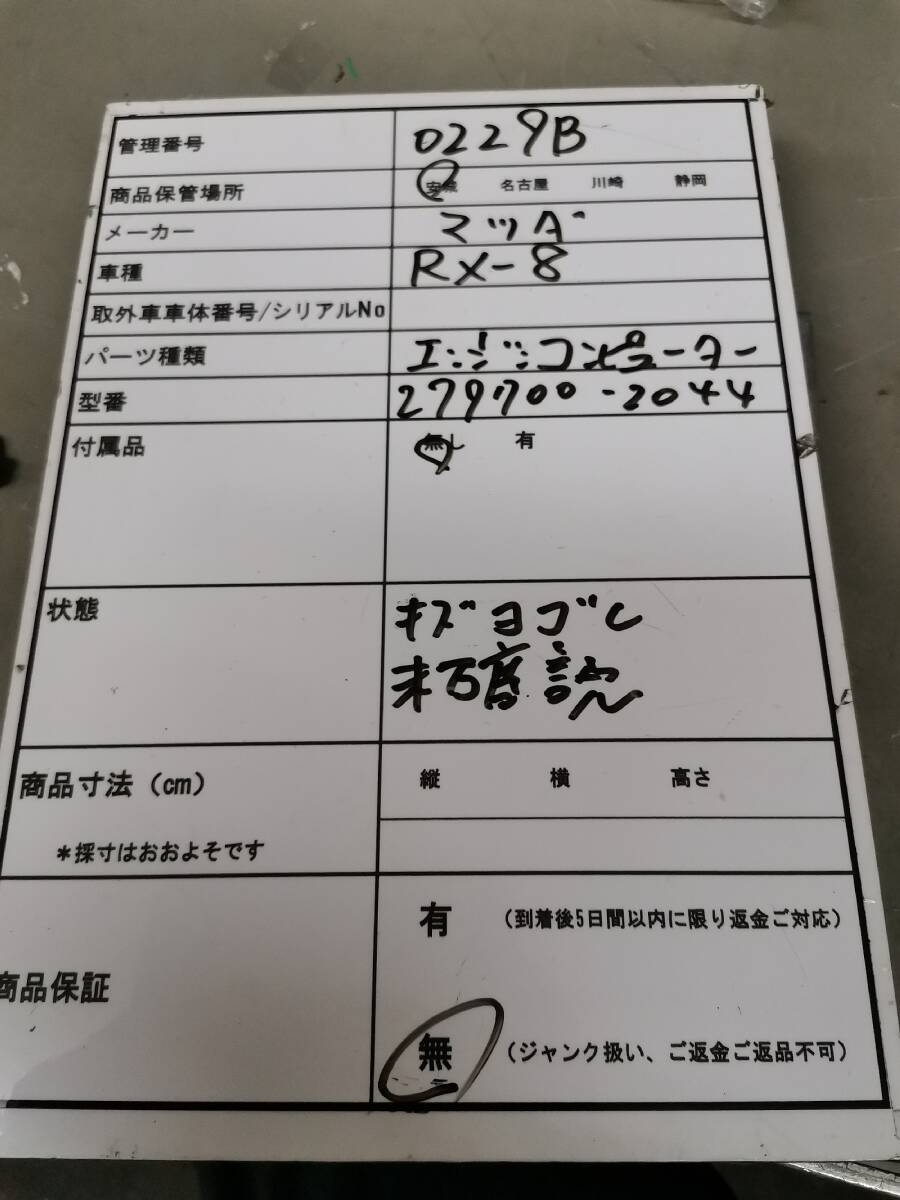 管理番号 0229B
商品保管場所 安城 名古屋 川崎 静岡
メーカー マツダ
車種 RX-8
取外車車体番号/シリアルNo
パーツ種類 エンジンコンピューター
型番 279700-2044
付属品 無し 有
状態 キズヨゴレ
未確認
商品寸法(cm) 縦 横 高さ
*採寸はおおよそです
有 (到着後5日間以内に限り返金ご対応)
商品保証
無 (ジャンク扱い、ご返金ご返品不可)